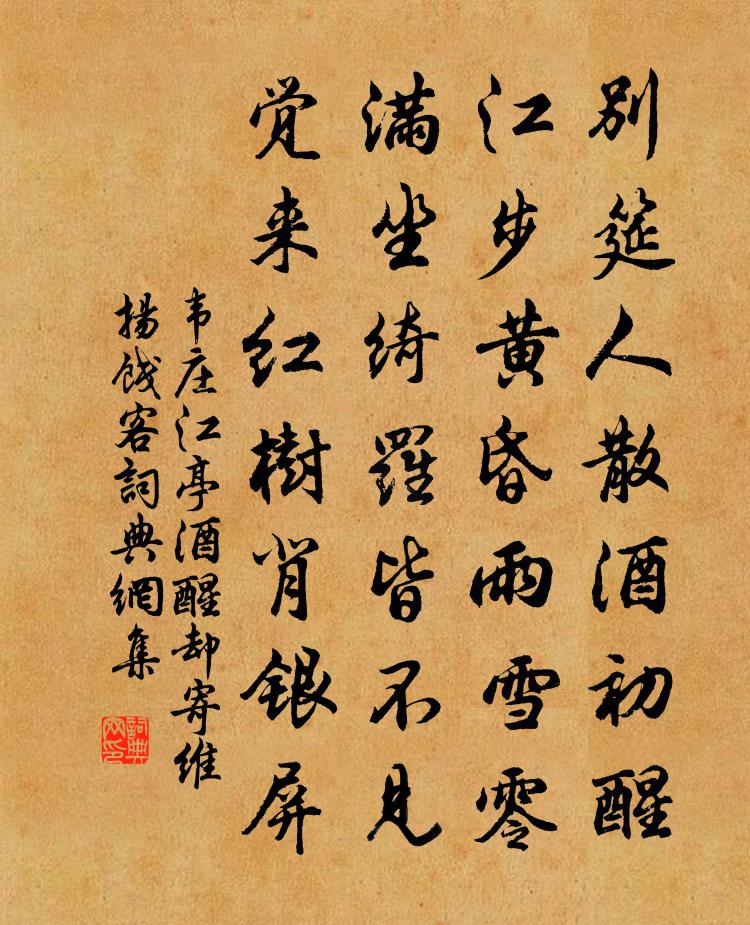 别筵人散酒初醒
江步黄昏雨雪零
满坐绮罗皆不见
觉来红樹背银屏
韦庄江亭酒醒却寄维
揚餞客詞典網集
詞典
网印